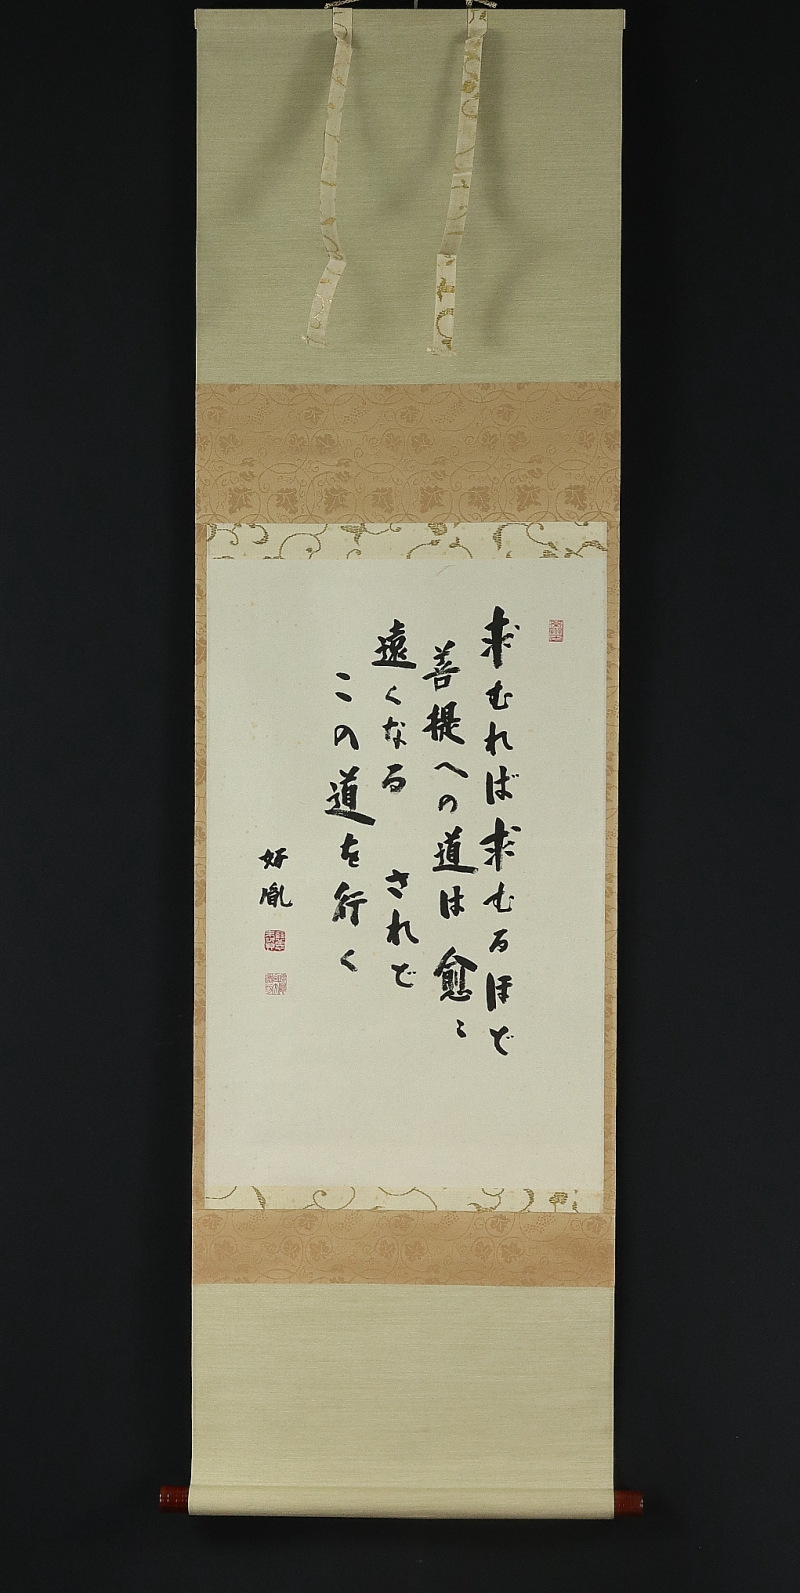 求むれば求むるほど
菩提への道は愈々
遠くなる されど
この道を行く
好胤